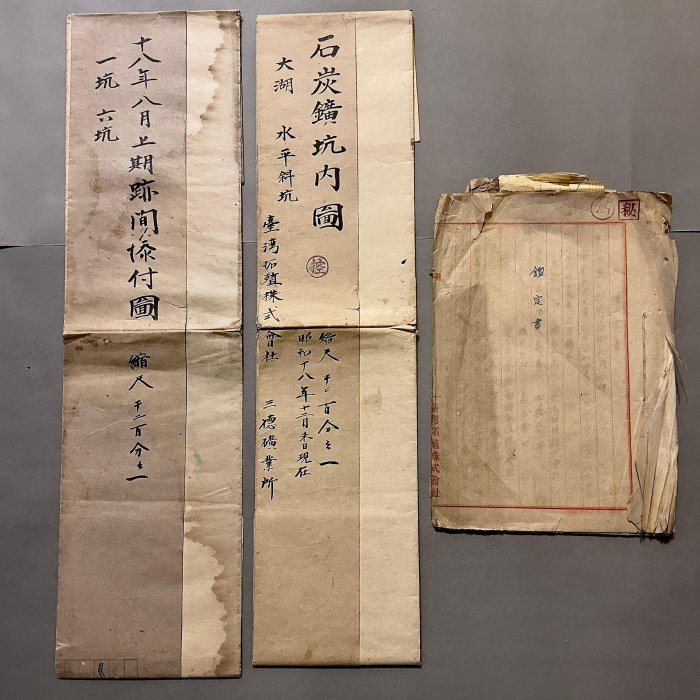 十八年八月上期跡間添付圖
一坑 六坑
縮尺 千二百分之一
石炭鑛坑内圖
大湖 水平斜坑
控
臺湾拓殖株式會社 三德礦業所
縮尺 千二百分之一
昭和十八年十二月末日現在
秘
鑑定書
株式會社